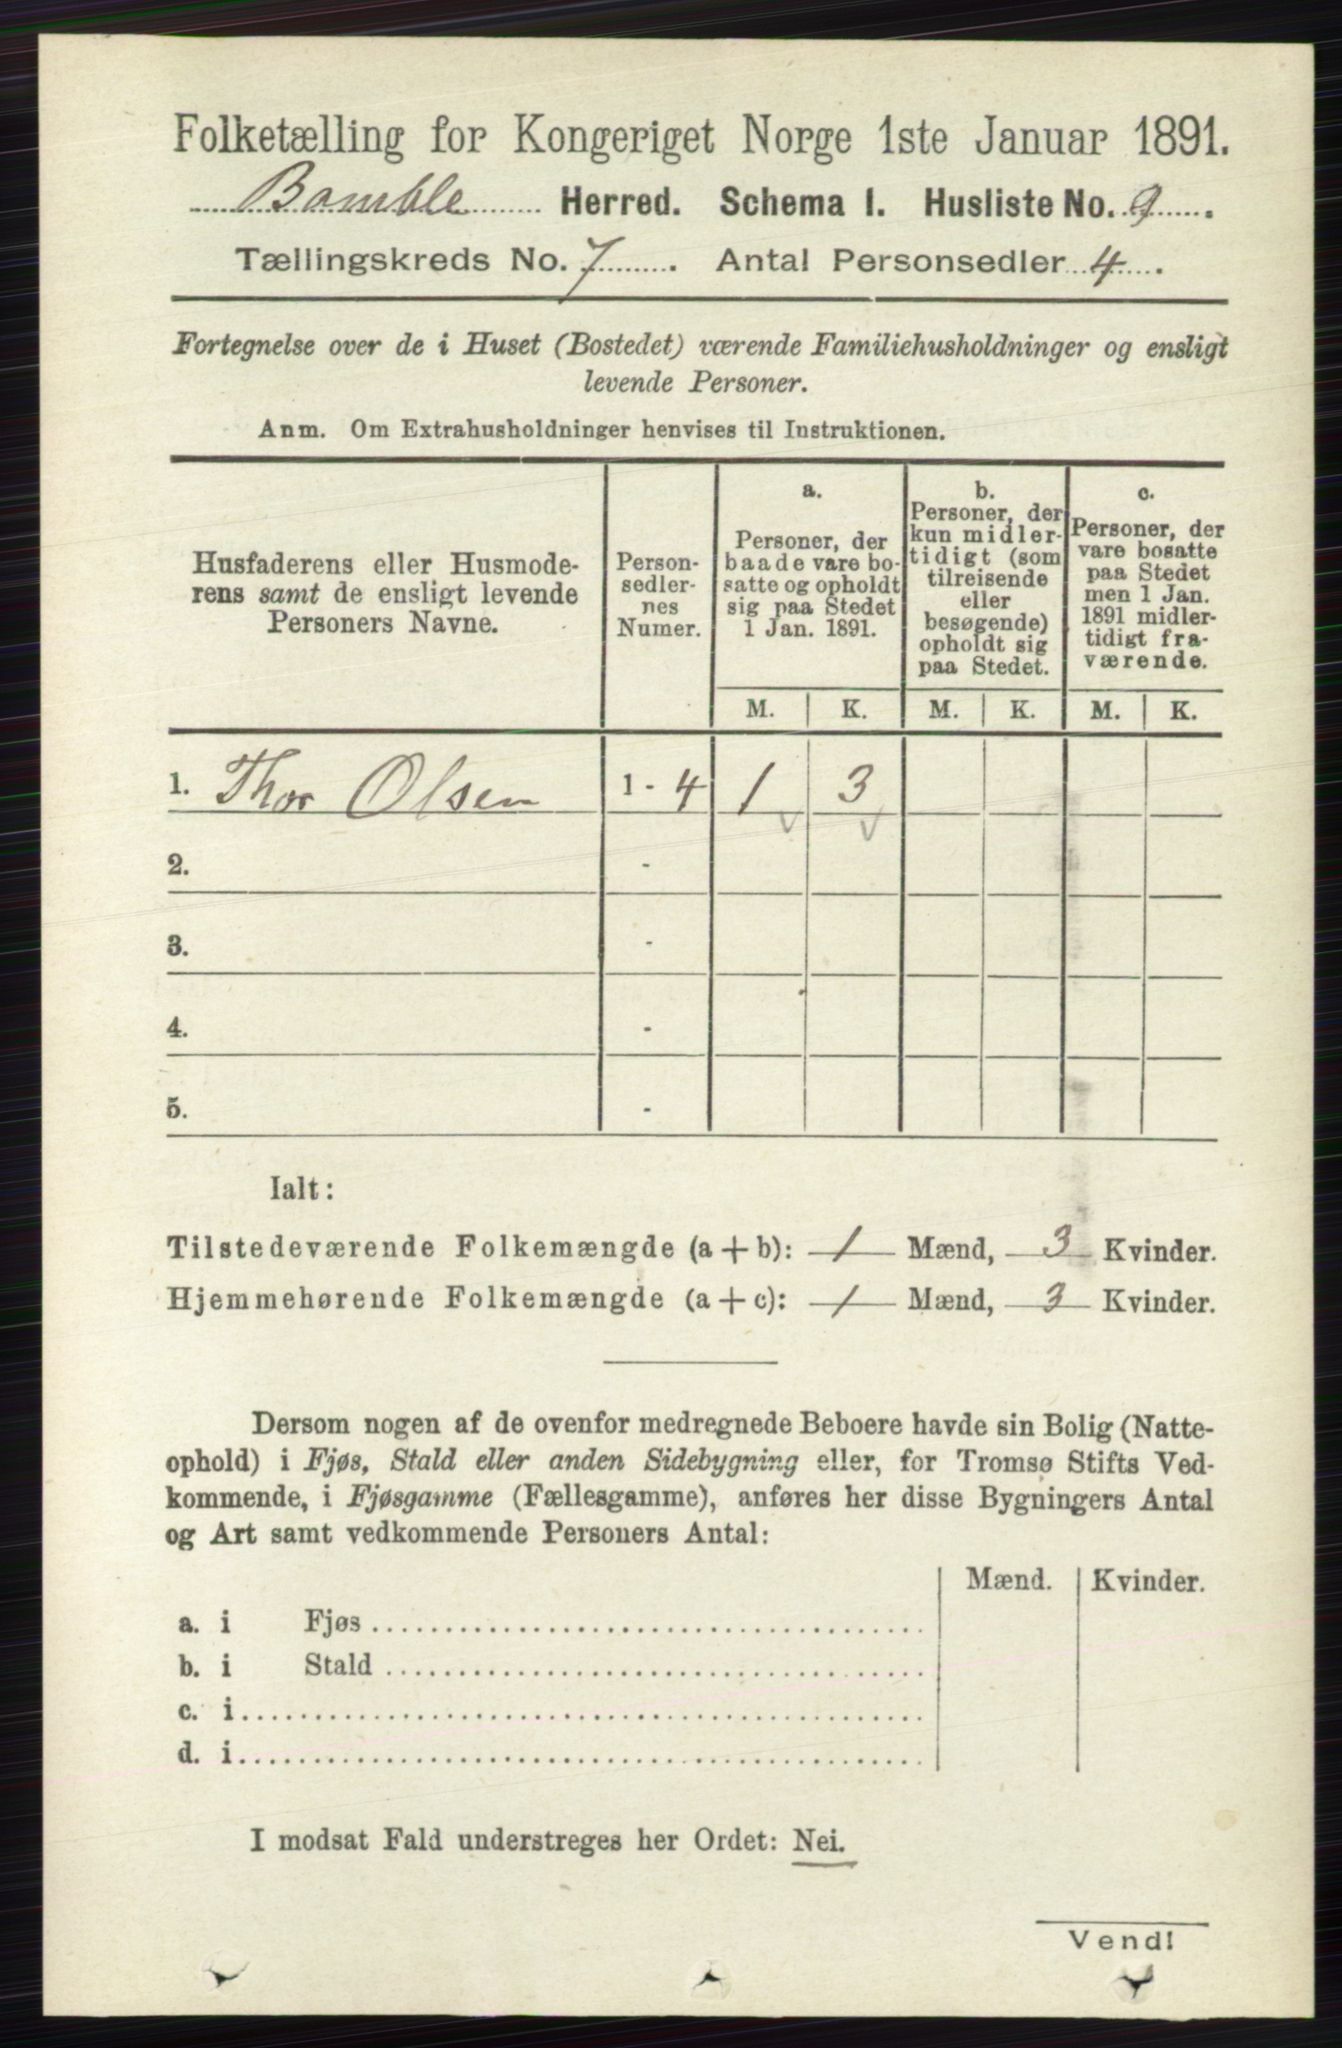 Folketælling for Kongeriget Norge 1ste Januar 1891.
Bamble Herred. Schema I. Husliste No. 9.
Tællingskreds No. 7. Antal Personsedler 4.
Fortegnelse over de i Huset (Bostedet) værende Familiehusholdninger og ensligt
levende Personer.
Anm. Om Extrahusholdninger henvises til Instruktionen.
Husfaderens eller Husmode-
rens samt de ensligt levende
Personers Navne.
Person-
sedler-
nes
Numer.
a.
Personer, der
baade vare bo-
satte og opholdt
sig paa Stedet
1 Jan. 1891.
b.
Personer, der
kun midler-
tidigt (som
tilreisende
eller
besøgende)
opholdt sig
paa Stedet.
c.
Personer, der
vare bosatte
paa Stedet
men 1 Jan.
1891 midler-
tidigt fra-
værende.
M. K. M. K. M. K.
1. Thor Olsen 1 - 4 1 3
2. -
3. -
4. -
5. -
Ialt:
Tilstedeværende Folkemængde (a + b): 1 Mænd, 3 Kvinder.
Hjemmehørende Folkemængde (a + c): 1 Mænd, 3 Kvinder.
Dersom nogen af de ovenfor medregnede Beboere havde sin Bolig (Natte-
ophold) i Fjøs, Stald eller anden Sidebygning eller, for Tromsø Stifts Ved-
kommende, i Fjøsgamme (Fællesgamme), anføres her disse Bygningers Antal
og Art samt vedkommende Personers Antal:
Mænd. Kvinder.
a. i Fjøs
b. i Stald
c. i
d. i
I modsat Fald understreges her Ordet: Nei.
Vend!